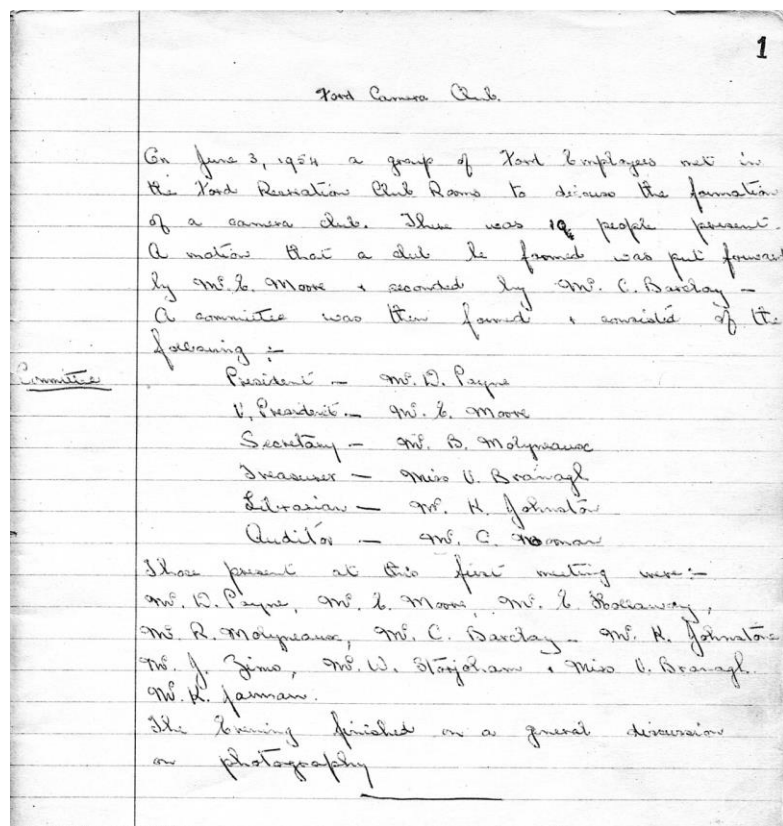 1
Ford Camera Club.
On June 3, 1954 a group of Ford Employees met in
the Ford Recreation Club Rooms to discuss the formation
of a camera club. There was 10 people present.
A motion that a club be formed was put forward
by Mr. E. Moore & seconded by Mr. C. Barclay –
A committee was then formed & consisted of the
following :–
Committee
President – Mr. D. Payne
V. President – Mr. E. Moore
Secretary – Mr. B. Molyneaux
Treasurer – Miss V. Branagh
Librarian – Mr. K. Johnston
Auditor – Mr. C.
Those present at this first meeting were:–
Mr. D. Payne, Mr. E. Moore, Mr. E. Holloway,
Mr. R. Molyneaux, Mr. C. Barclay – Mr. K. Johnstone
Mr. J. Zimo, Mr. W. & Miss V. Branagh.
Mr. K. Jarman.
The Evening finished on a general discussion
on photography